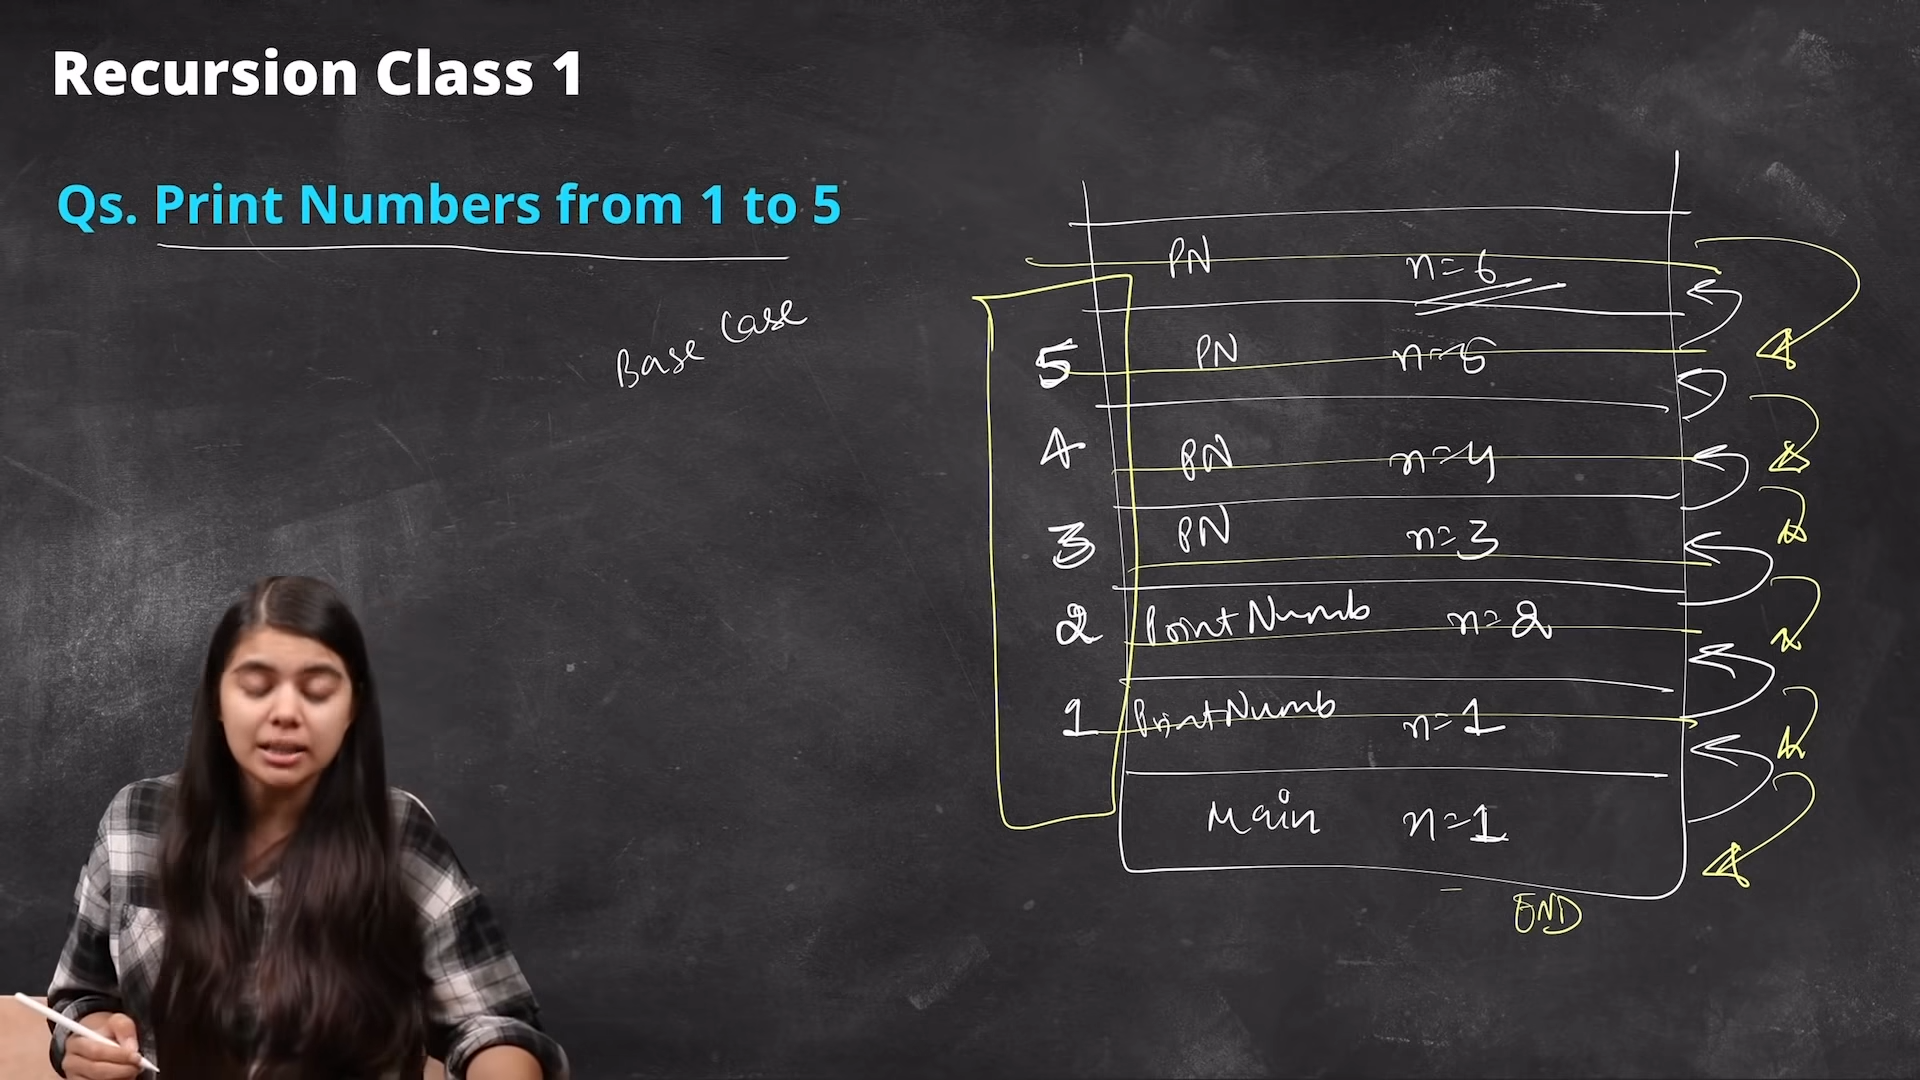 Recursion Class 1
Qs. Print Numbers from 1 to 5
Base Case
PN n=6
5 PN n=5
4 PN n=4
3 PN n=3
2 PrintNumb n=2
1 PrintNumb n=1
Main n=1
END